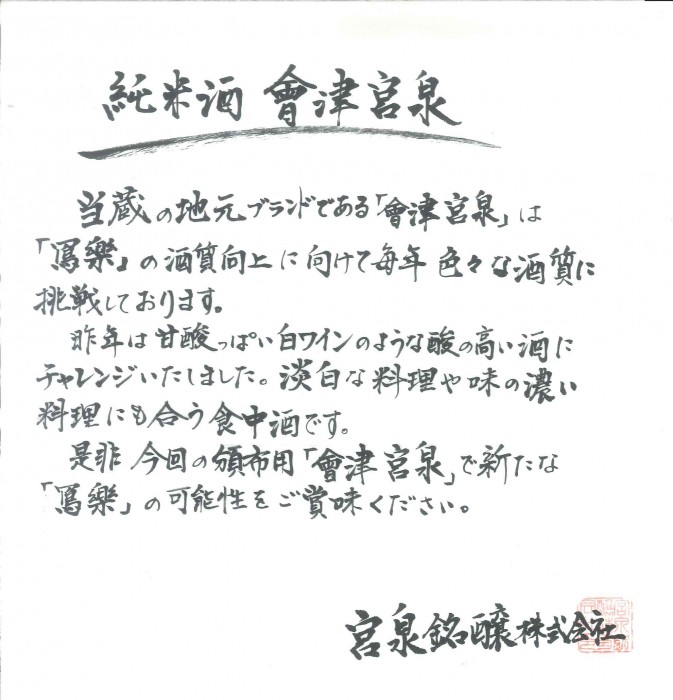 純米酒 會津宮泉
当蔵の地元ブランドである「會津宮泉」は
「寫樂」の酒質向上に向けて毎年色々な酒質に
挑戦しております。
昨年は甘酸っぱい白ワインのような酸の高い酒に
チャレンジいたしました。淡白な料理や味の濃い
料理にも合う食中酒です。
是非 今回の頒布用「會津宮泉」で新たな
「寫樂」の可能性をご賞味ください。
宮泉銘醸株式会社